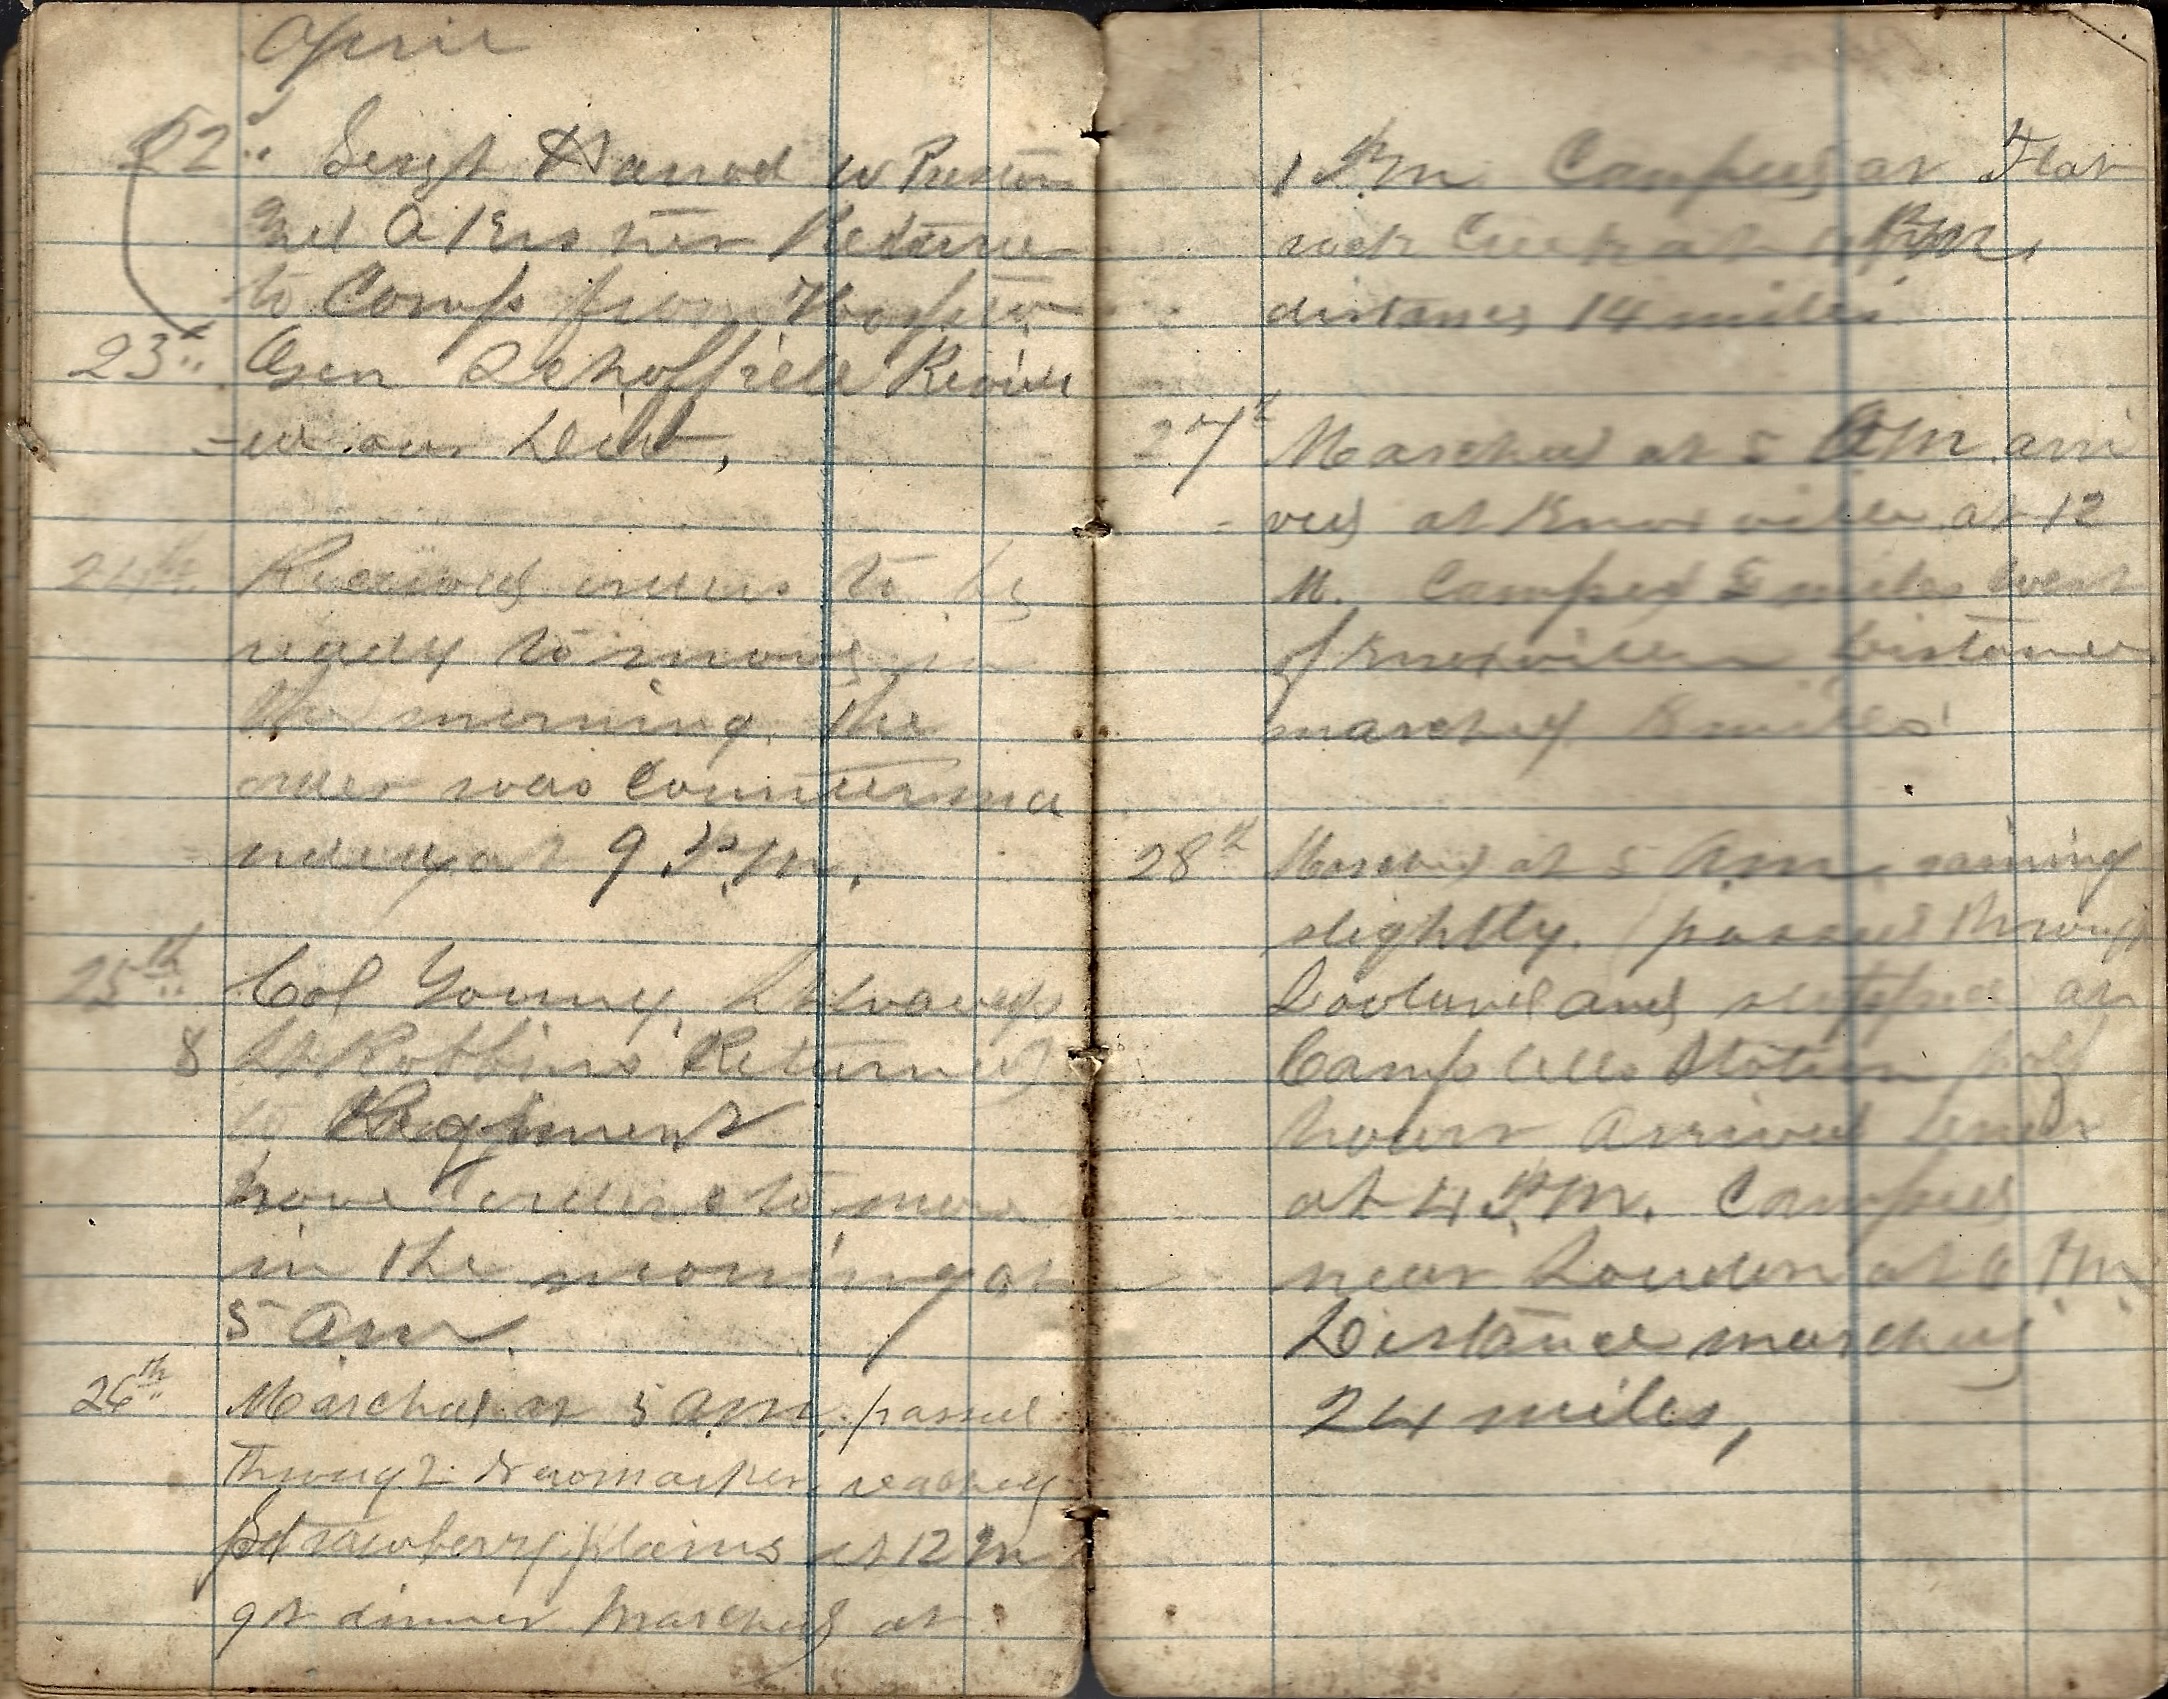 April
22d Sergt Harrod W Preston
and A
to Comp from
23d Gen Schoffield Review
-ed our Div,
24th Received orders to be
ready to move in
the morning. The
order was Counterma
nded at 9 P.M.
25th Col Young,
& Lt Robbins Returned
to Regiment
have orders to move
in the morning at
5 am.
26th Marched at 5 a.m. passed
through Newmarket reached
Strawberry plains at 12 M
got dinner Marched at
1 P.M Camped at Flat
rock Creek at P.M.
distance 14 miles
27th Marched at 5 A M arri
ved at Knoxville at 12
M. Camped miles West
of Knoxville Distance
marched miles
28th Marched at 5 a.m. raining
slightly, passed through
Lovland and stopped at
Campbells Station half
hour Arrived
at 4 P.M. Camped
near Loudon at 6 P.M.
Distance marched
24 miles,